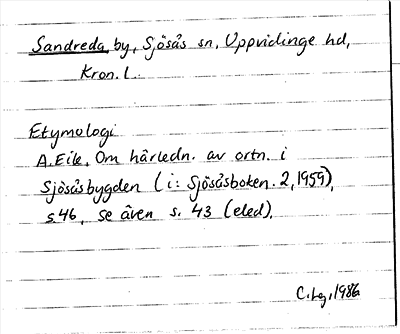 Sandreda by, Sjösås sn, Uppvidinge hd,
Kron. l.
Etymologi
A. Eile, Om härledn. av ortn. i
Sjösåsbygden (i: Sjösåsboken. 2, 1959),
s. 46, se även s. 43 (eled).
1986